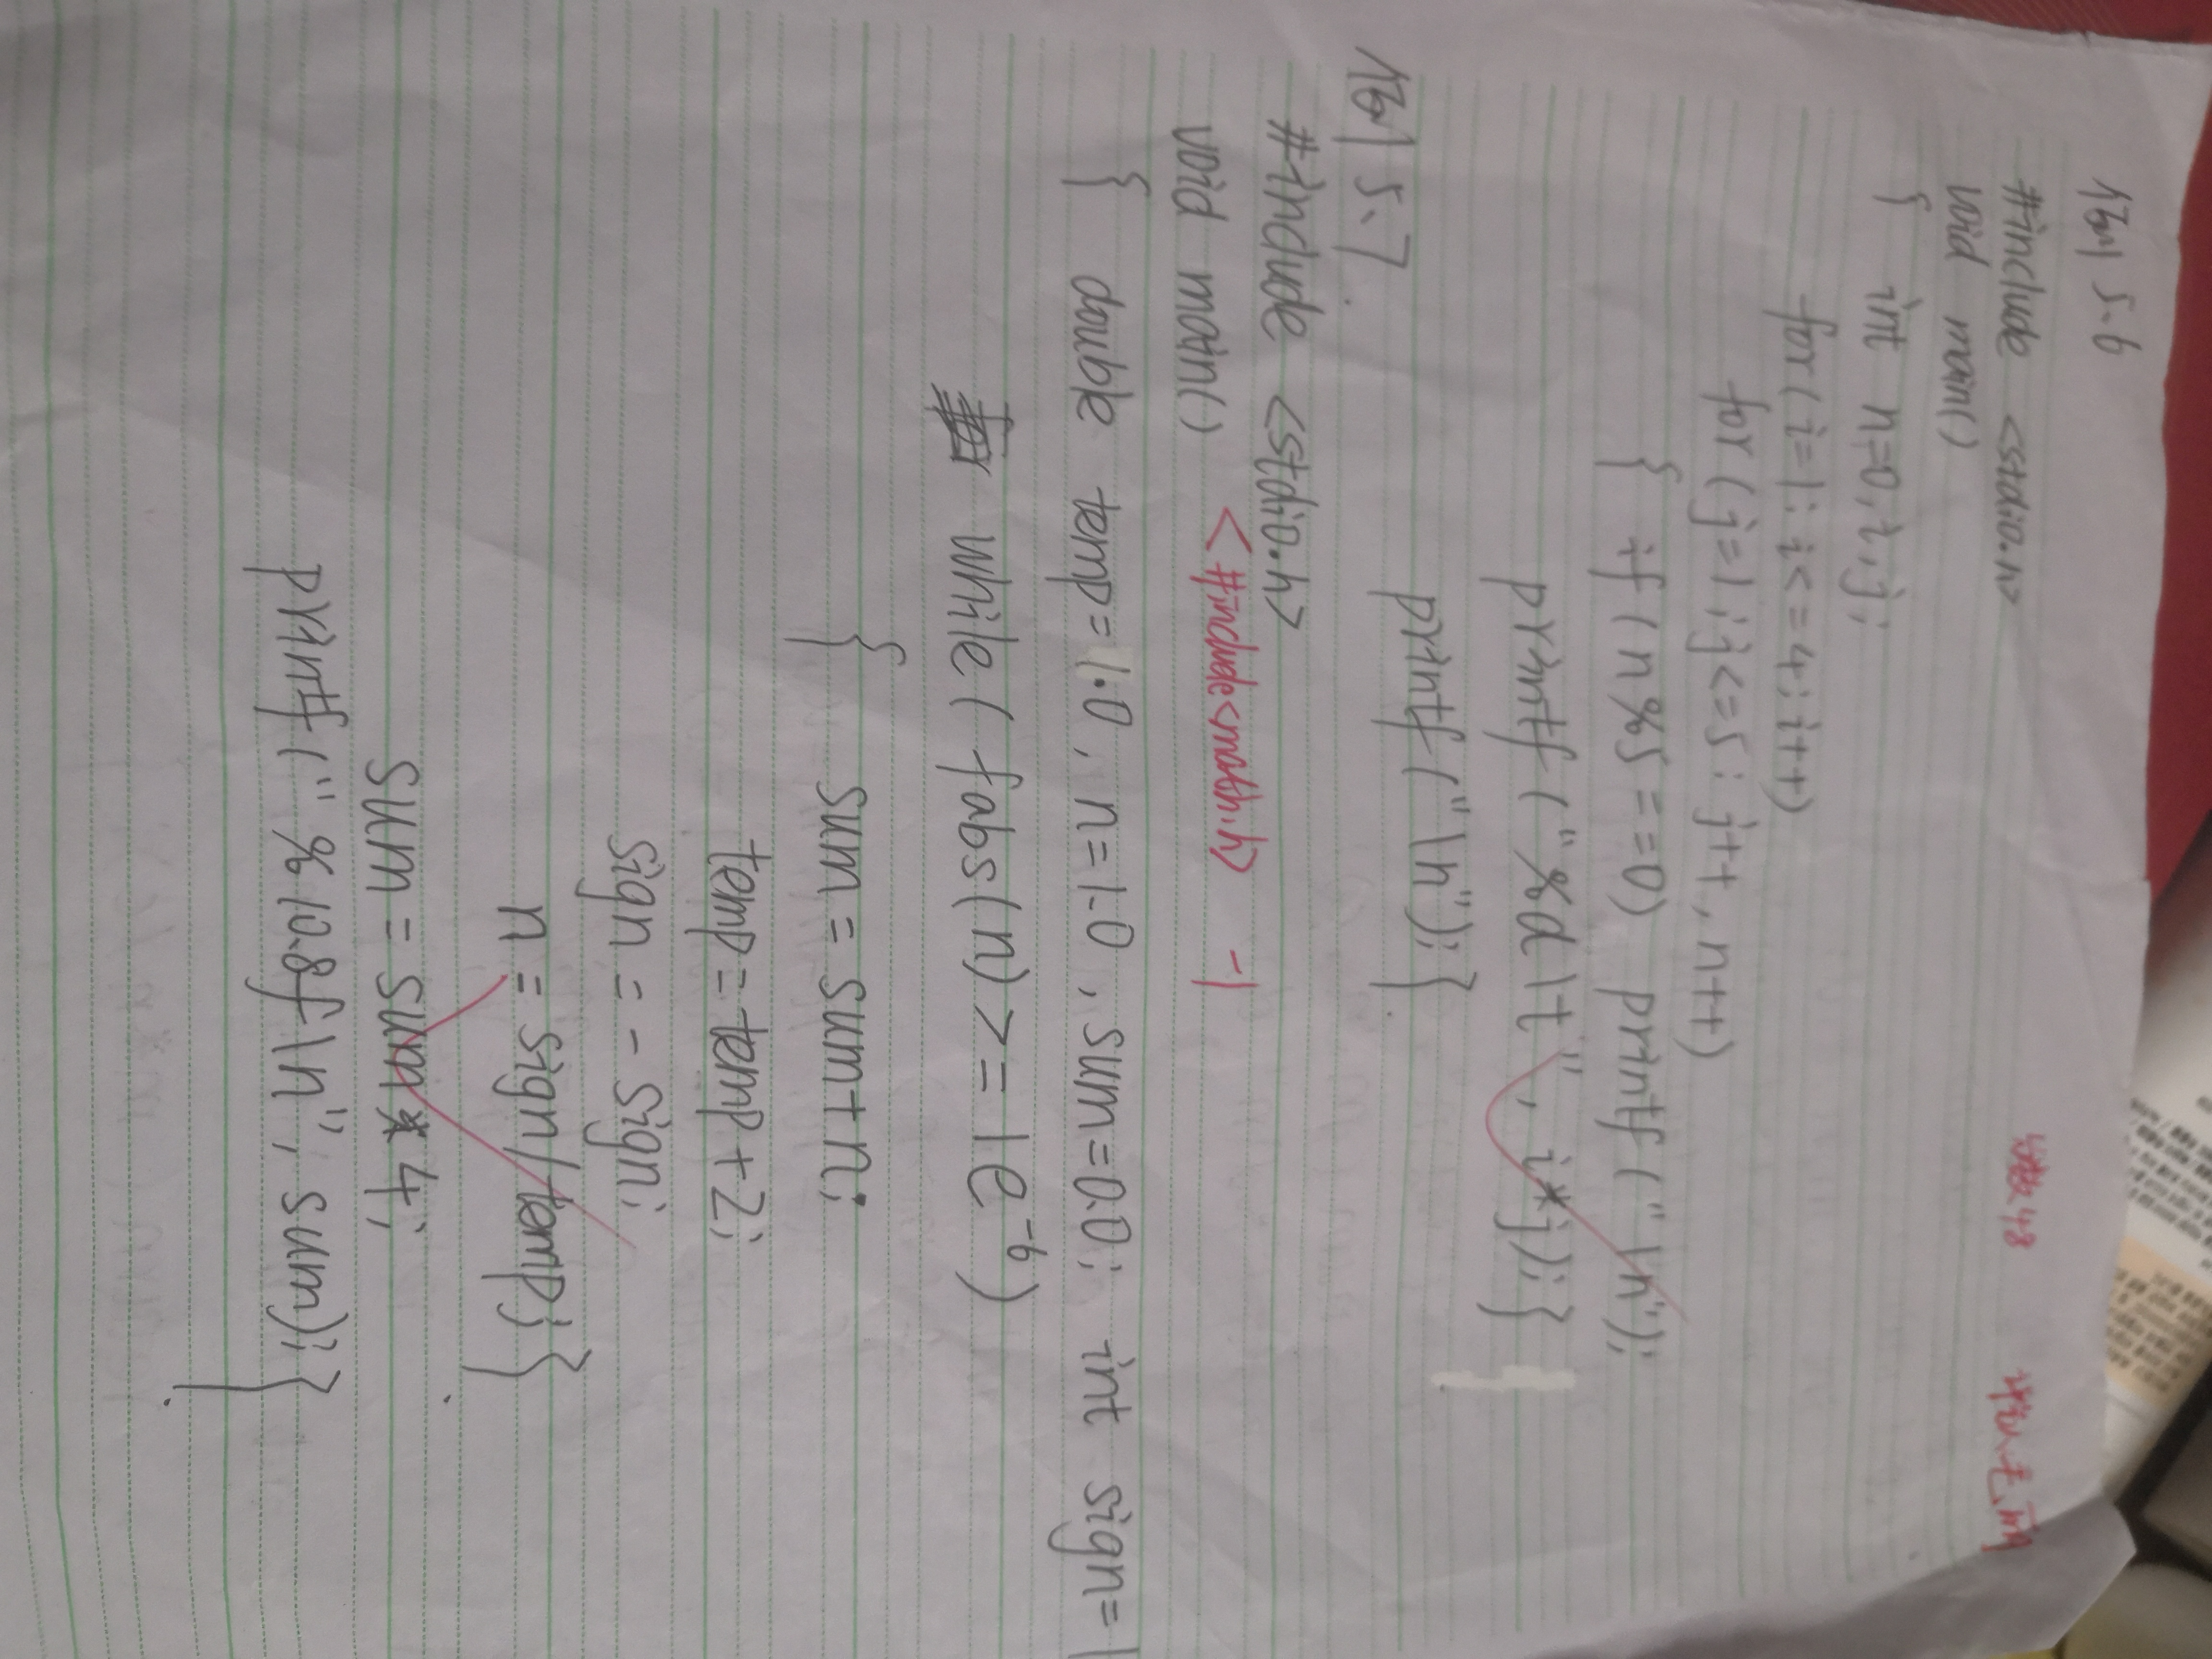 例 5.6
#include <stdio.h>
void main()
{ int n=0,i,j;
for(i=1; i<=4; i++)
for(j=1; j<=5; j++, n++)
{ if(n%5==0) printf("\n");
printf("%d\t", i*j);}
printf("\n");}
例 5.7.
#include <stdio.h>
void main() <#include<math.h> -1
{ double temp=1.0, n=1.0, sum=0.0; int sign=1
while(fabs(n)>=1e⁻⁶)
{ sum=sum+n;
temp=temp+2;
sign=-sign;
n=sign/temp;}
sum=sum*4;
printf("%10.8f\n", sum);}